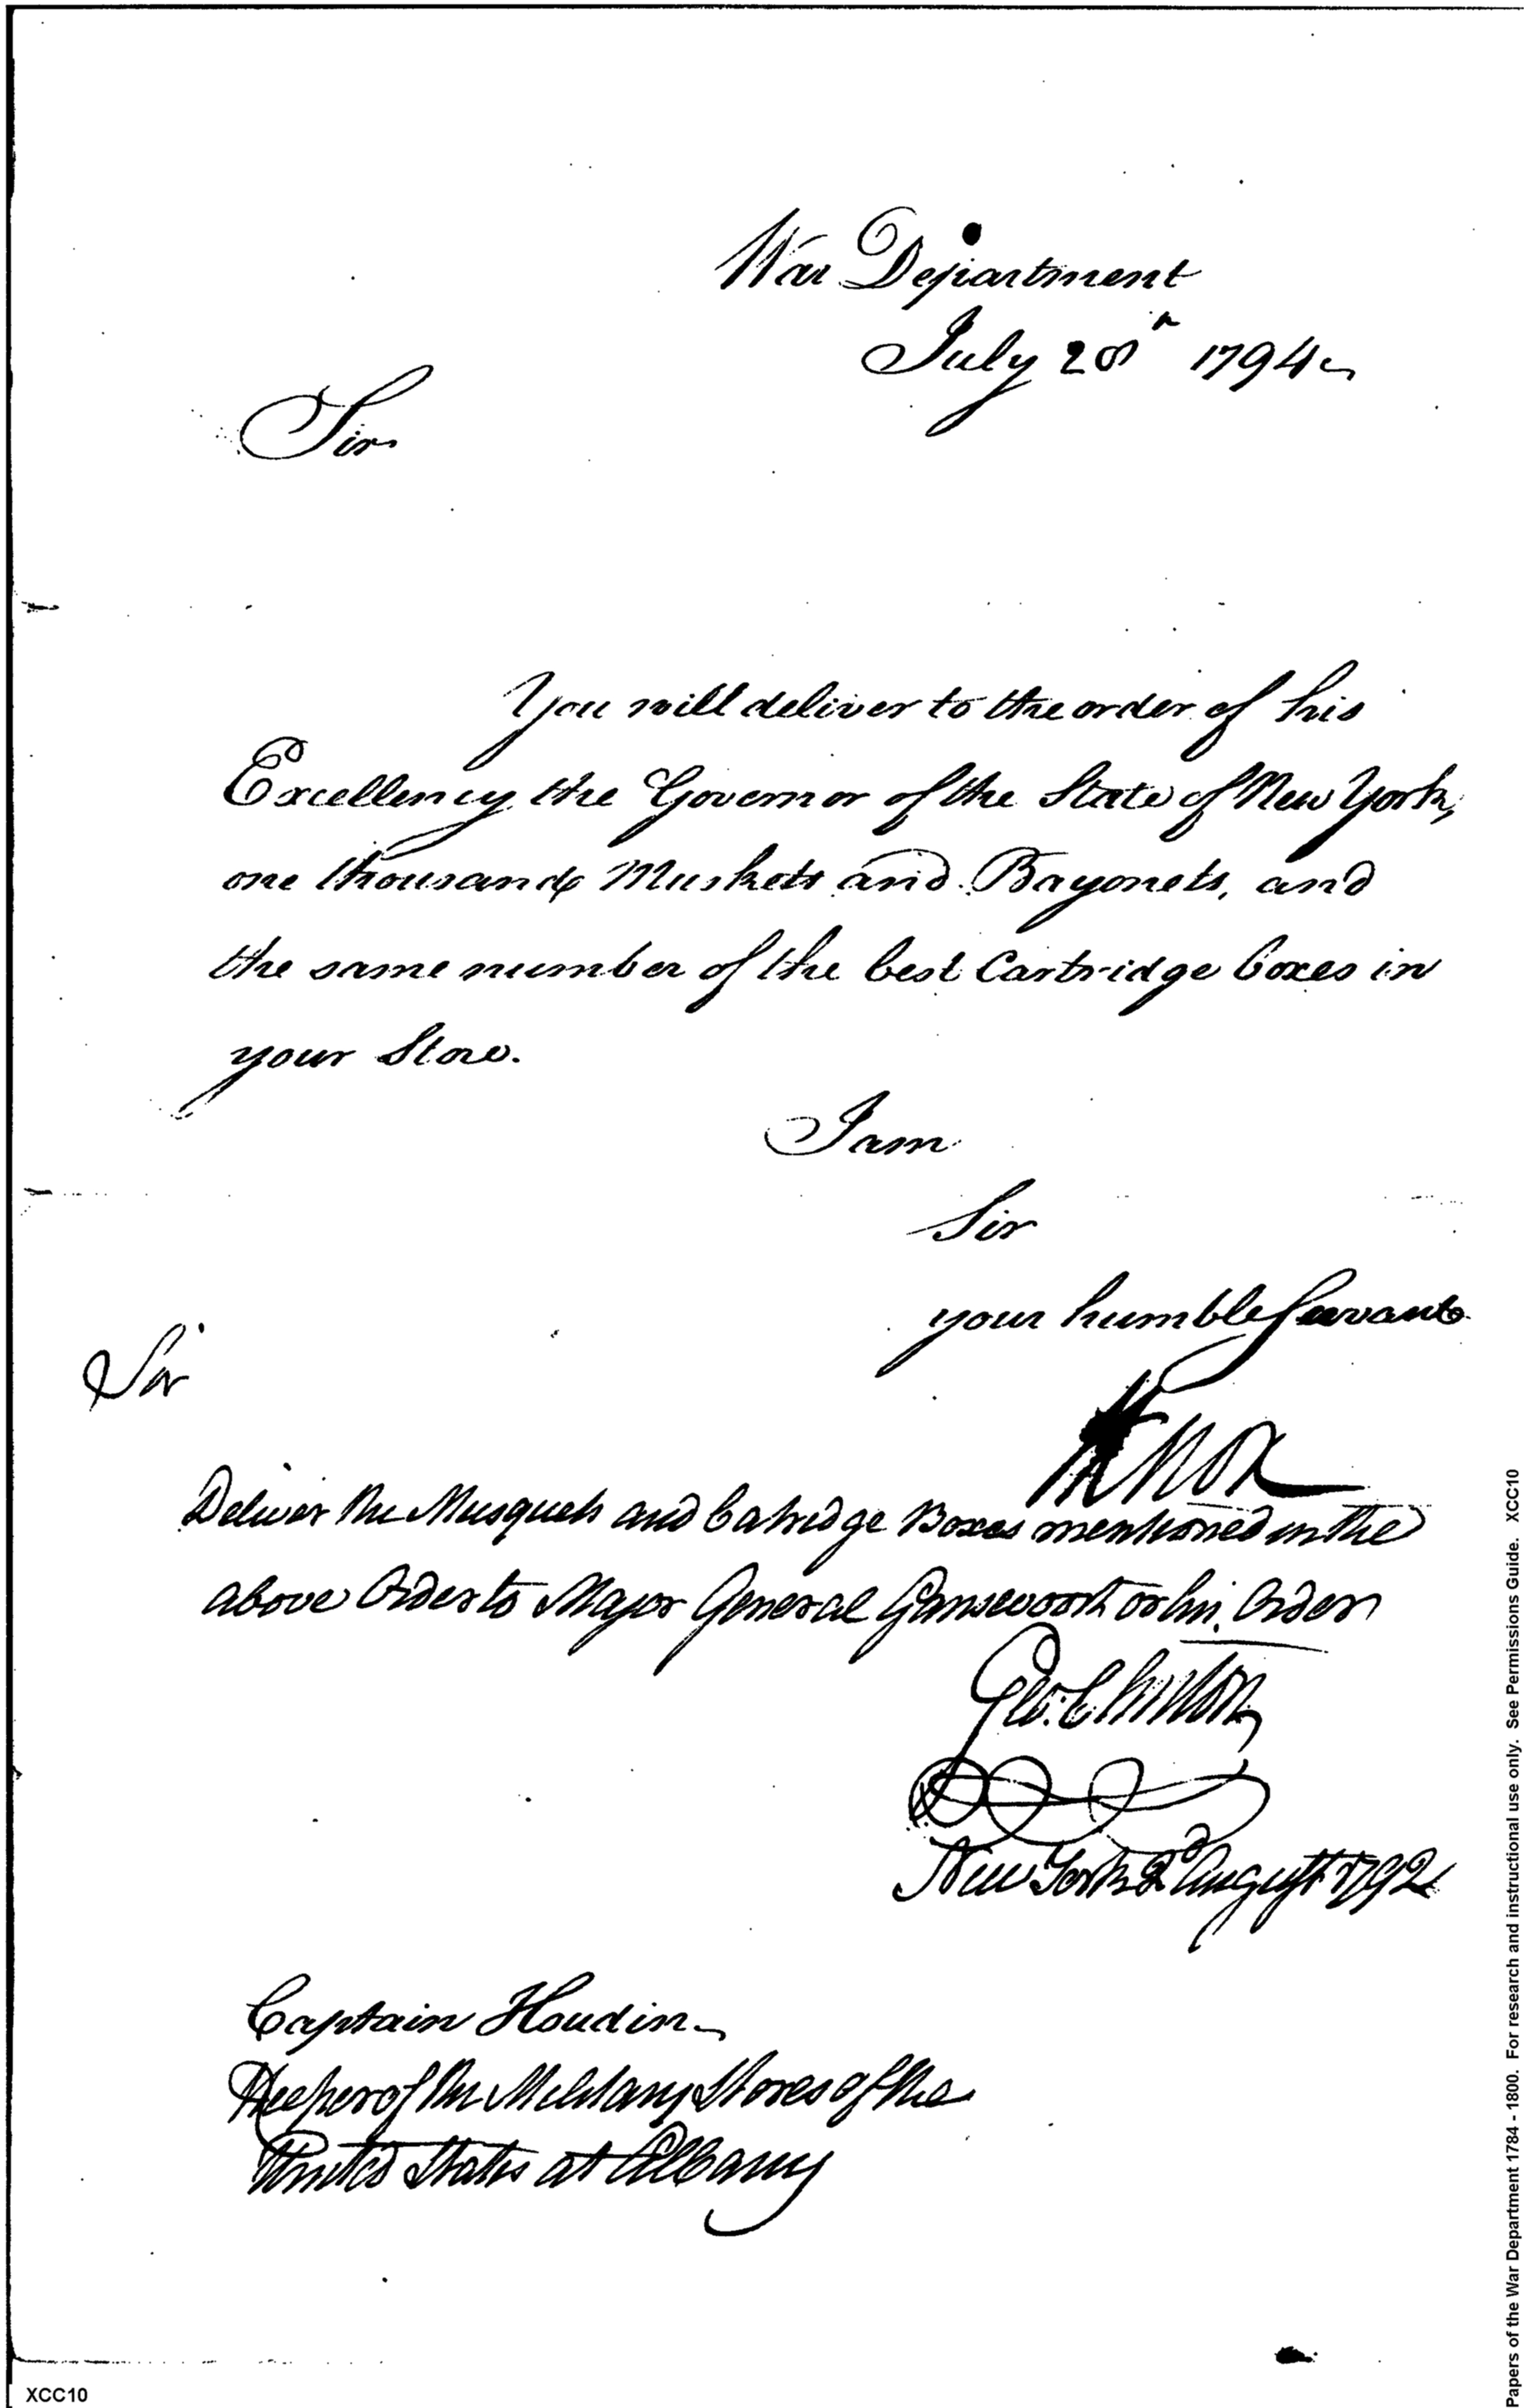 War Department
July 28th 1794
Sir
You will deliver to the order of his
Excellency the Governor of the State of New York,
one thousand Muskets and Bayonets, and
the same number of the best Cartridge boxes in
your Store.
I am
Sir
your humble Servant
HKnox
Sir
Deliver the Musquets and Catridge Boxes mentioned in the
above Order to Major General Gansevoort or his Order
Geo. Clinton
New York 2d August
Captain Houdin
Keeper of the Military Stores of the
United States at Albany
XCC10
Papers of the War Department 1784 - 1800. For research and instructional use only. See Permissions Guide. XCC10